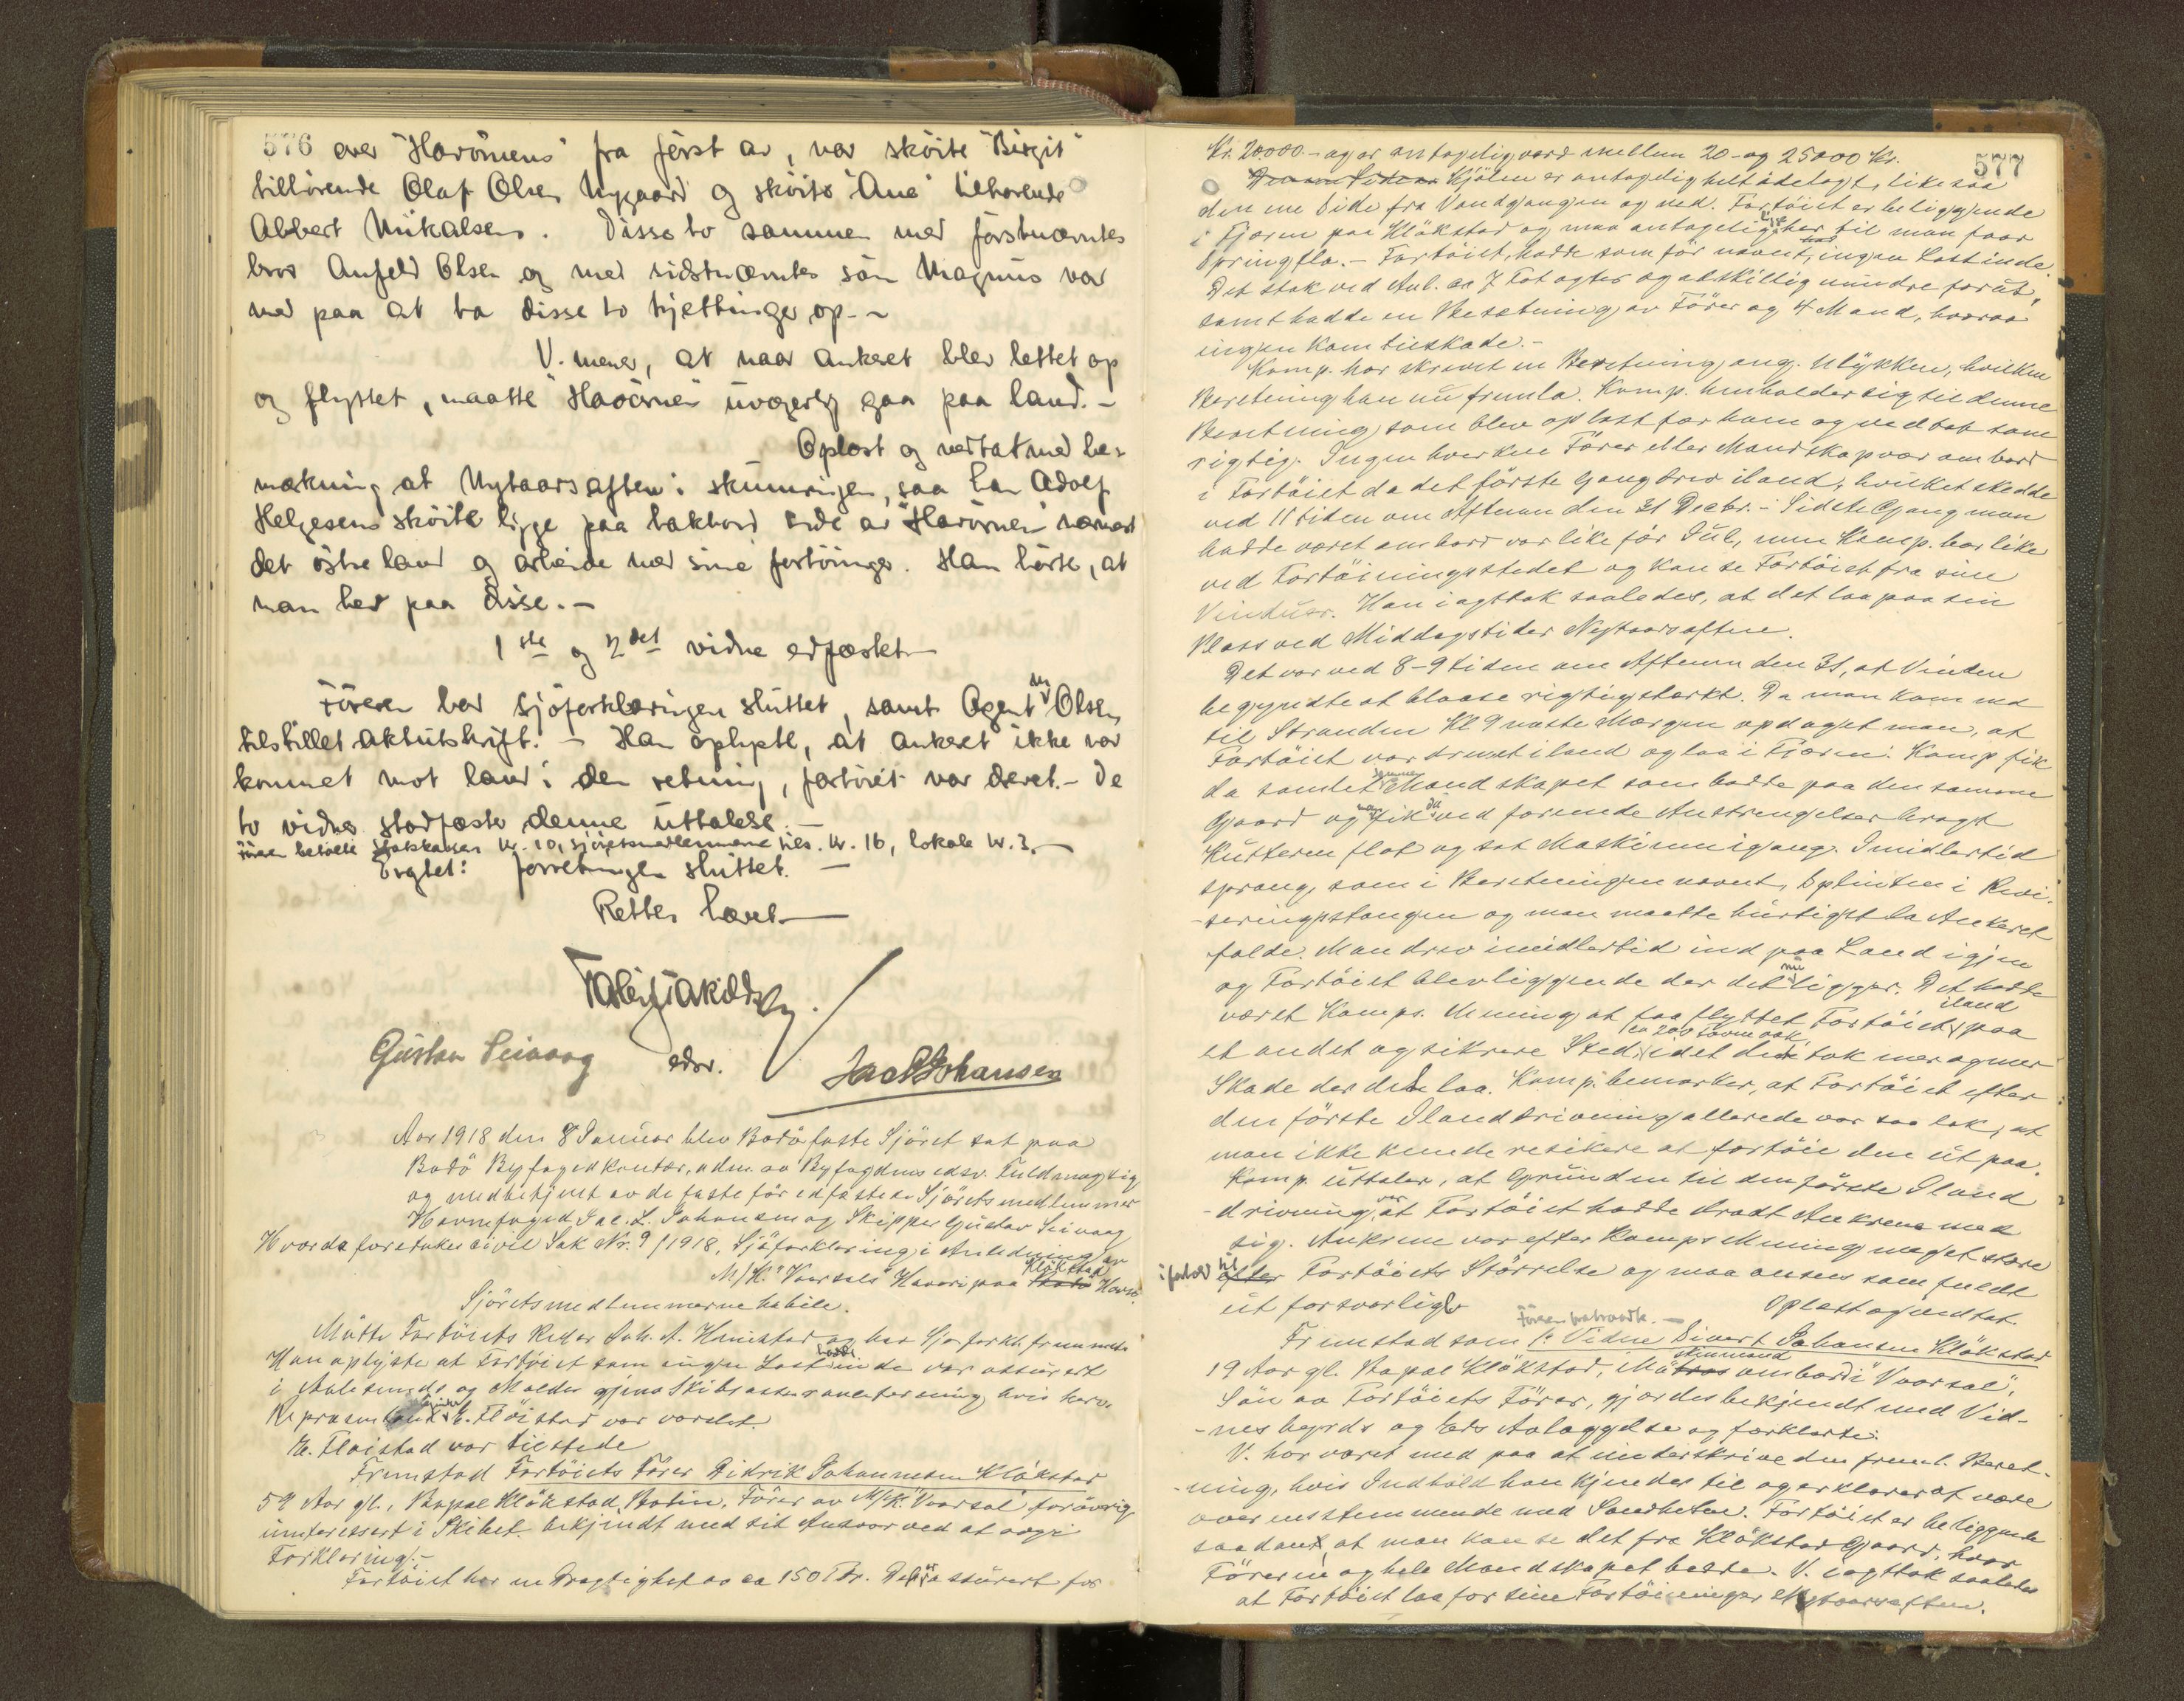 576 over "Havörnens" fra först av, var sköite "Birgit"
tilhörende Olaf Olsen Nygaard og sköite "Ane" tilhörende
Albert Mikalsen. Disse to sammen med förstnævntes
bror Anfeld Olsen og med sidstnævntes sön Magnus var
med paa at ta disse to kjettinger op. -
V. mener, at naar ankeret blev lettet op
og flyttet, maatte "Havörnen" uvægerlig gaa paa land. -
Oplæst og vedtat med be-
merkning at Nytaarsaften i skumringen, saa han Adolf
Helgesens sköite ligge paa bakbord side av "Havörnen" nærmest
det östre land og arbeide med sine fortöininger. Han hörte, at
man hev paa disse. -
1ste og 2det vidne edfæstet -
Föreren bad sjöforklaringen sluttet, samt Agent M Olsen
tilstillet aktutskrift. - Han oplyste, at ankeret ikke var
kommet mot land i den retning, fartöiet var drevet. - De
to vidner stadfæster denne uttalelse. -
Föreren betalte Statskassen kr. 10, sjöretsmedlemmene tils. kr. 16, lokale kr. 3. -
Evgtet: forretningen sluttet. -
Retten hævet -
Gustav Seivaag edsv. Jac L Johansen
Aar 1918 den 8 Januar blev Bodö faste Sjöret sat paa
Bodö Byfogedkontor, adm. av Byfogdens edsv. Fuldmægtig
og medbetjent av de faste för edfæstede Sjöretsmedlemmer
Havnefoged Jac. L. Johansen og Skipper Gustav Seivaag
Hvorda foretokes civil Sak Nr. 9/1918, Sjöforklaring i Anledning av
M/K. "Vaarsals" Havari paa Klökstad Havn.
Sjöretsmedlemmerne habile.
Mötte Fartöiets Reder Joh. A. Hunstad og bad Sjöforkl. fremmet.
Han oplyste at Fartöiet som ingen Last hadde inde var assurert
i Aalesunds og Molde gjens. Skibsassuranceforening hvis herv.
Repræsentant E. Flöistad var varslet.
E. Flöistad var tilstede
Fremstod Fartöiets Förer Didrik Johannesen Klökstad
52 Aar gl., Bopæl Klökstad, Bodin, Förer av M/K. "Vaarsal" forövrig
uinteressert i Skibet. Bekjendt med sit Ansvar ved at avgi
Forklaring. -
Fartöiet har en Drægtighet av ca 150 Tdr. Det er assurert for
577
Kr. 20000. - og er antagelig værd mellem 20- og 25000 Kr.
Kjölen er antagelig helt ödelagt, likesaa
den ene Side fra Vandgangen og ned. Fartöiet er beliggende
i Fjæren paa Klökstad og maa antagelig ligge her til man faar
Springflo. - Fartöiet, hadde som för nævnt, ingen Last inde.
Det stak ved Anl. ca 7 Fot agter og atskillig mindre forut,
samt hadde en Besetning av Förer og 4 Mand, hvorav
ingen kom tilskade. -
Komp. har skrevet en Beretning ang. Ulykken, hvilken
Beretning han nu fremla. Komp. henholder sig til denne
Beretning som blev oplæst for ham og vedtat som
rigtig. Ingen hverken Förer eller Mandskap var ombord
i Fartöiet da det förste Gang drev iland, hvilket skedde
ved 11 tiden om Aftenen den 31 Decbr. - Sidste Gang man
hadde været ombord var like för Jul, men Komp. bor like
ved Fortöiningsstedet og kan se Fartöiet fra sine
Vinduer. Han iagttok saaledes, at det laa paa sin
Plass ved Middagstider Nytaarsaften.
Det var ved 8-9 tiden om Aftenen den 31, at Vinden
begyndte at blaase rigtig sterkt. Da man kom ned
til Stranden Kl 9 næste Morgen opdaget man, at
Fartöiet var drevet iland og laa i Fjæren. Komp fik
da samlet sammen Mandskapet som bodde paa den samme
Gaard og man fik da ved forenede Anstrengelser bragt
Kutteren flot og sat Maskinen igang. Imidlertid
sprang, som i Beretningen nævnt, Splinten i Rever-
seringsstangen og man maatte hurtigst la Ankeret
falde. Man drev imidlertid ind paa Land igjen
og Fartöiet blev liggende der det nu ligger. Det hadde
været Komps. Mening at faa flyttet Fartöiet iland paa
et andet og sikrere Sted ca 200 Favne væk idet det tok mer og mer
Skade der det laa. Komp. bemerker, at Fartöiet efter
den förste Ilanddrivning allerede var saa læk, at
man ikke kunde resikere at fortöie den ut paa.
Komp. uttaler, at Grunden til den förste Iland
-drivning var at Fartöiet hadde dradt Ankrene med
sig. Ankrene var efter Komps Mening meget store
i forhold til Fartöiets Störrelse og maa ansees som fuldt
ut forsvarlig Oplæst og vedtat.
Föreren fratraadte. -
Fremstod som 1. Vidne Sivert Johansen Klökstad
19 Aar gl. Bopæl Klökstad, skibsmand ombord i "Vaarsal",
Sön av Fartöiets Förer, gjordes bekjendt med Vid-
-nes byrds og Eds Avlæggelse og forklarte:
V. har været med paa at underskrive den freml. Beret-
-ning, hvis Indhold han kjender til og erklærer at være
overensstemmende med Sandheten. Fartöiet er beliggende
saadant, at man kan se det fra Klökstad Gaard, hvor
Föreren og hele Mandskapet bodde. V. iagttok saaledes
at Fartöiet laa for sine Fortöininger Nytaarsaften.